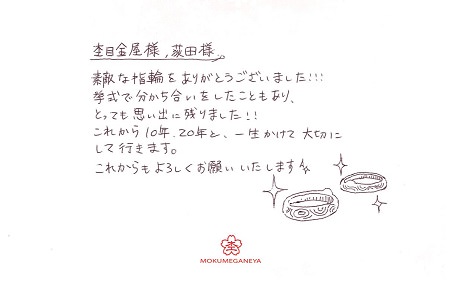 杢目金屋様，荻田様。
素敵な指輪をありがとうございました!!!
挙式で分かち合いをしたこともあり、
とっても思い出に残りました!!
これから10年、20年と、一生かけて大切に
して行きます。
これからもよろしくお願いいたします
MOKUMEGANEYA